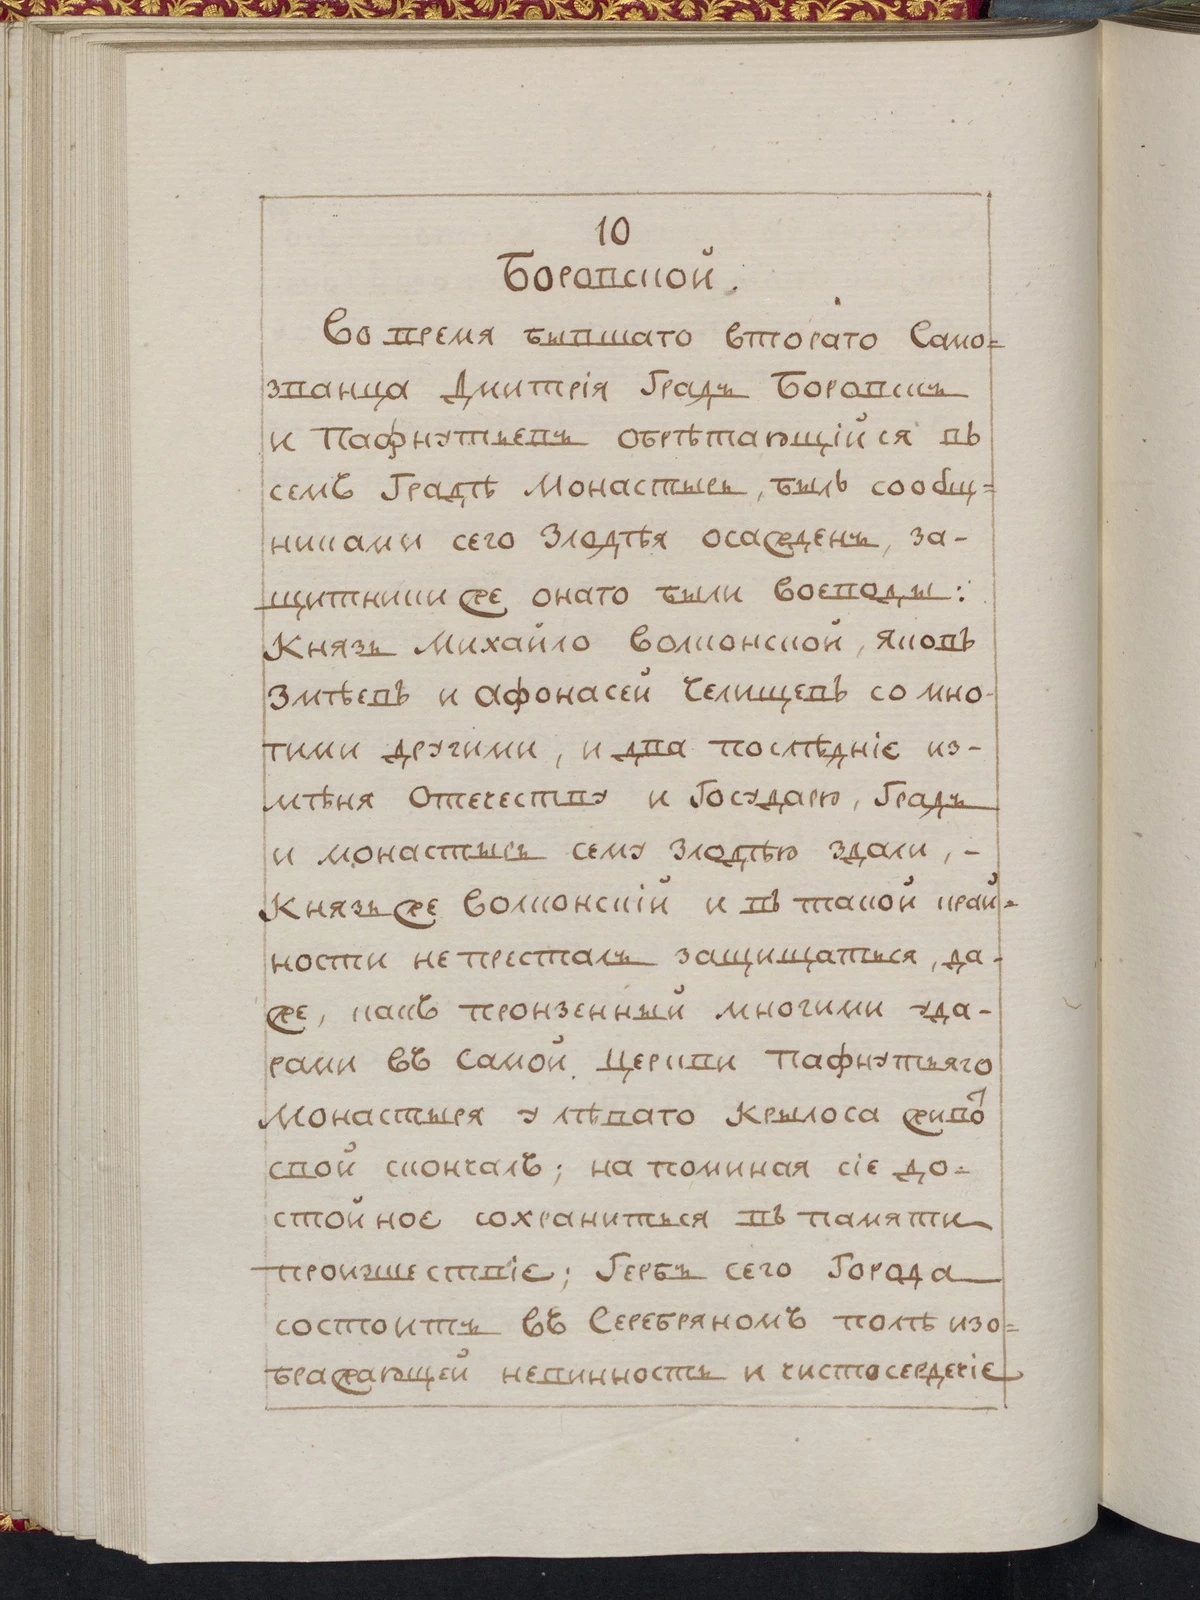 10
Боровской.
Во время бывшаго втораго Само=
званца Дмитрія Градъ Боровскъ
и Пафнутьевъ обрѣтающійся въ
семъ Градѣ Монастырь, былъ сообщ=
никами сего Злодѣя осажденъ, за-
щитники же онаго были Воеводы:
Князь Михайло Волконской, Яковъ
Змѣевъ и Афонасей Челищевъ со мно-
гими другими, и два послѣдніе из-
мѣня Отечеству и Государю, Градъ
и монастырь сему Злодѣю здали, -
Князь же Волконскій и въ такой край=
ности непресталъ защищаться, да-
же, какъ пронзенный многими уда-
рами въ самой Церкви Пафнутьяго
Монастыря у лѣваго Крылоса живо̾т
свой скончалъ; на поминая сіе до=
стойное сохраниться въ памяти
произшествіе; Гербъ сего Города
состоитъ въ Серебряномъ полѣ изо=
бражающей невинность и чистосердечіе